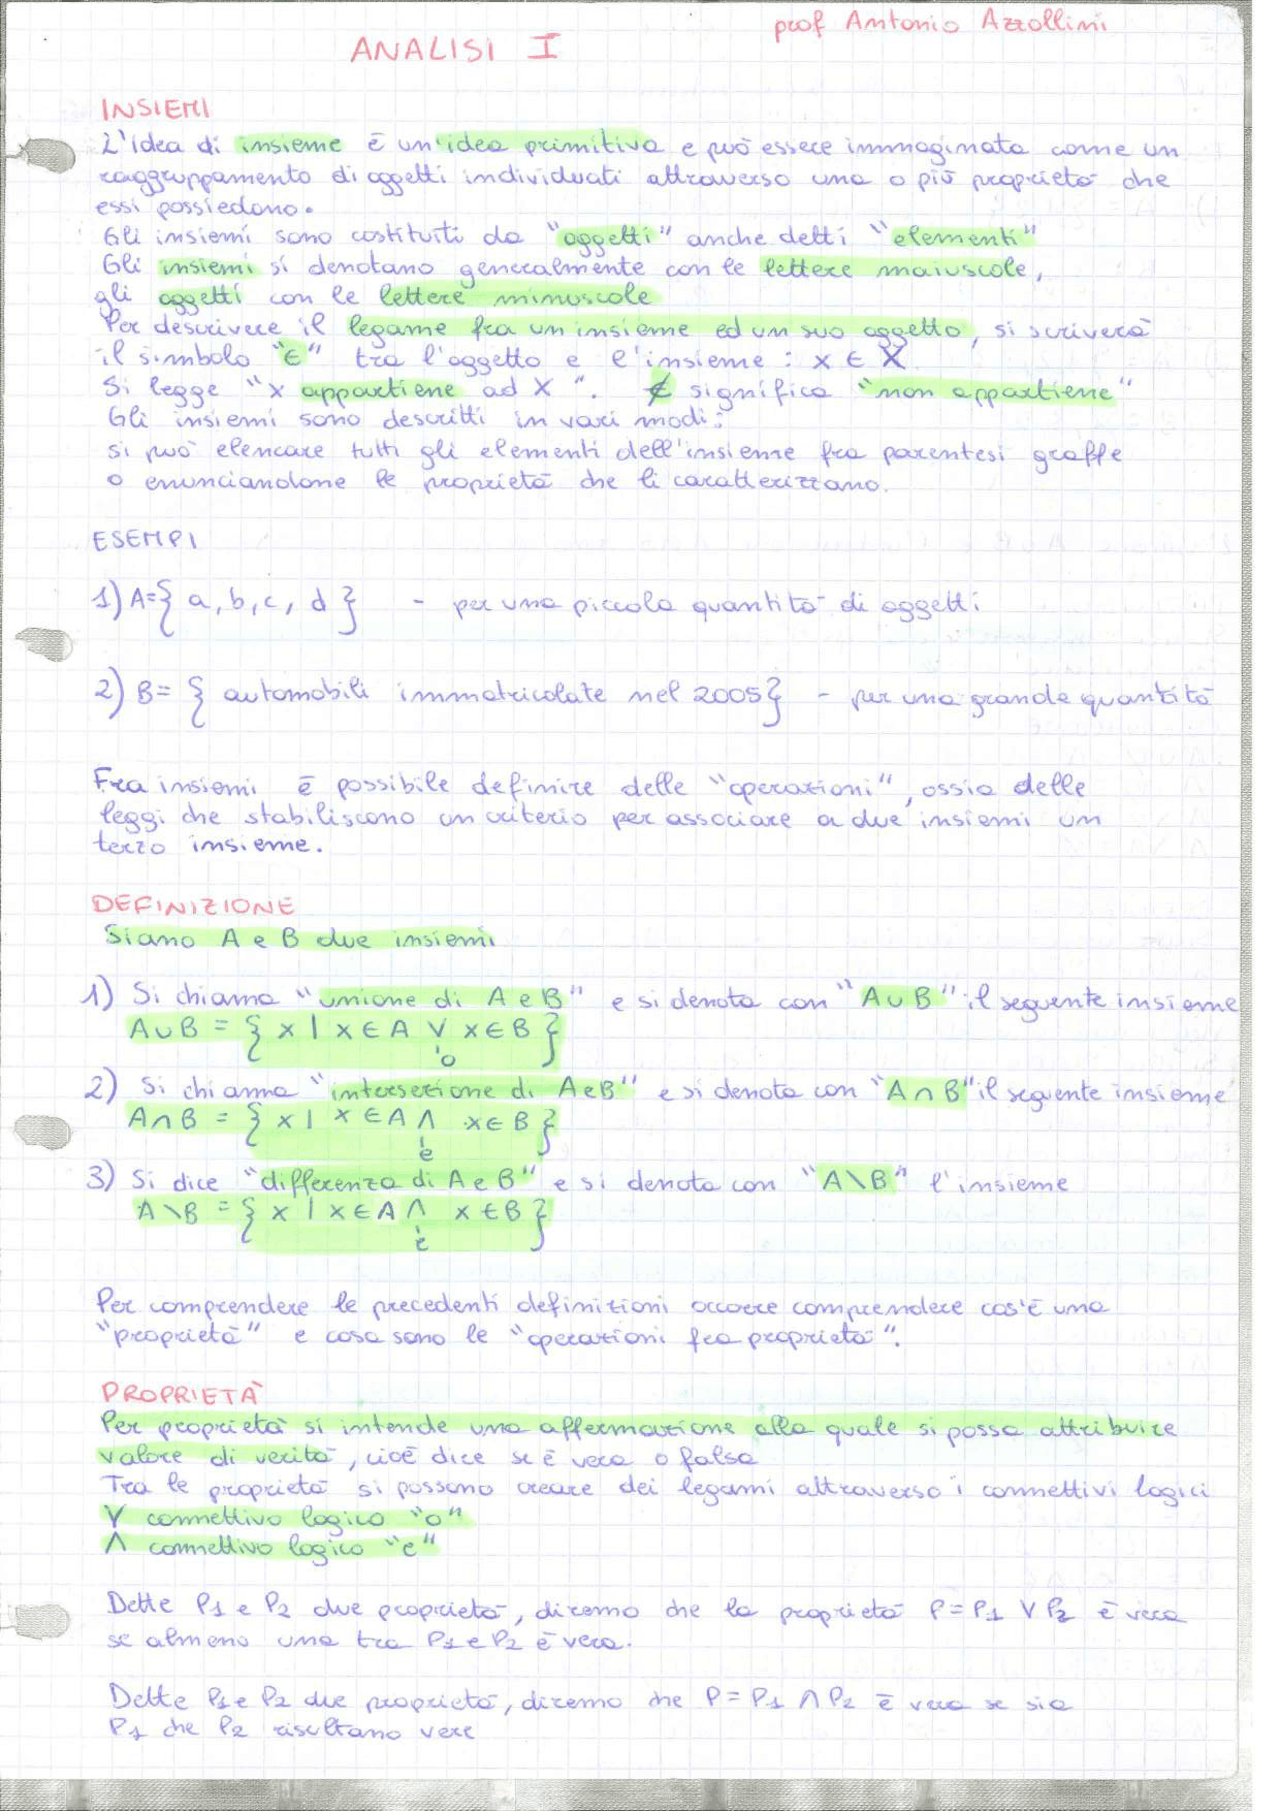 prof Antonio Azzollini
ANALISI I
INSIEMI
L'idea di insieme è un'idea primitiva e può essere immaginata come un
raggruppamento di oggetti individuati attraverso una o più proprietà che
essi possiedono.
Gli insiemi sono costituiti da "oggetti" anche detti "elementi"
Gli insiemi si denotano generalmente con le lettere maiuscole,
gli oggetti con le lettere minuscole
Per descrivere il legame fra un insieme ed un suo oggetto, si scriverà
il simbolo "∈" tra l'oggetto e l'insieme : x ∈ X
Si legge "x appartiene ad X". ∉ significa "non appartiene"
Gli insiemi sono descritti in vari modi:
si può elencare tutti gli elementi dell'insieme fra parentesi graffe
o enunciandone le proprietà che li caratterizzano.
ESEMPI
1) A={ a, b, c, d } - per una piccola quantità di oggetti
2) B= { automobili immatricolate nel 2005} - per una grande quantità
Fra insiemi è possibile definire delle "operazioni", ossia delle
leggi che stabiliscono un criterio per associare a due insiemi un
terzo insieme.
DEFINIZIONE
Siano A e B due insiemi
1) Si chiama "unione di A e B" e si denota con "A∪B" il seguente insieme
A∪B = { x | x∈A ∨ x∈B }
'o
2) Si chiama "intersezione di A e B" e si denota con "A∩B" il seguente insieme
A∩B = { x | x∈A ∧ x∈B }
'e
3) Si dice "differenza di A e B" e si denota con "A\B" l'insieme
A\B = { x | x∈A ∧ x∈B }
'e
Per comprendere le precedenti definizioni occorre comprendere cos'è una
"proprietà" e cosa sono le "operazioni fra proprietà".
PROPRIETÀ
Per proprietà si intende una affermazione alla quale si possa attribuire
valore di verità, cioè dice se è vera o falsa
Tra le proprietà si possono creare dei legami attraverso i connettivi logici
∨ connettivo logico "o"
∧ connettivo logico "e"
Dette P1 e P2 due proprietà, diremo che la proprietà P=P1 ∨ P2 è vera
se almeno una tra P1 e P2 è vera.
Dette P1 e P2 due proprietà, diremo che P=P1 ∧ P2 è vera se sia
P1 che P2 risultano vere